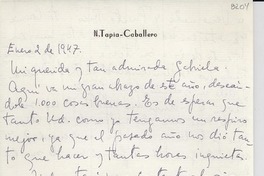 8204
N. Tapia-Caballero
Enero 2 de 1947.
Mi querida y tan admirada Gabriela:
Aquí va un gran abrazo de este año, deseán-
dole 1.000 cosas buenas. Es de esperar que
tanto Ud. como yo tengamos un respiro
mejor, ya que el pasado año nos dió tan-
to que hacer y tantas horas inquietas.